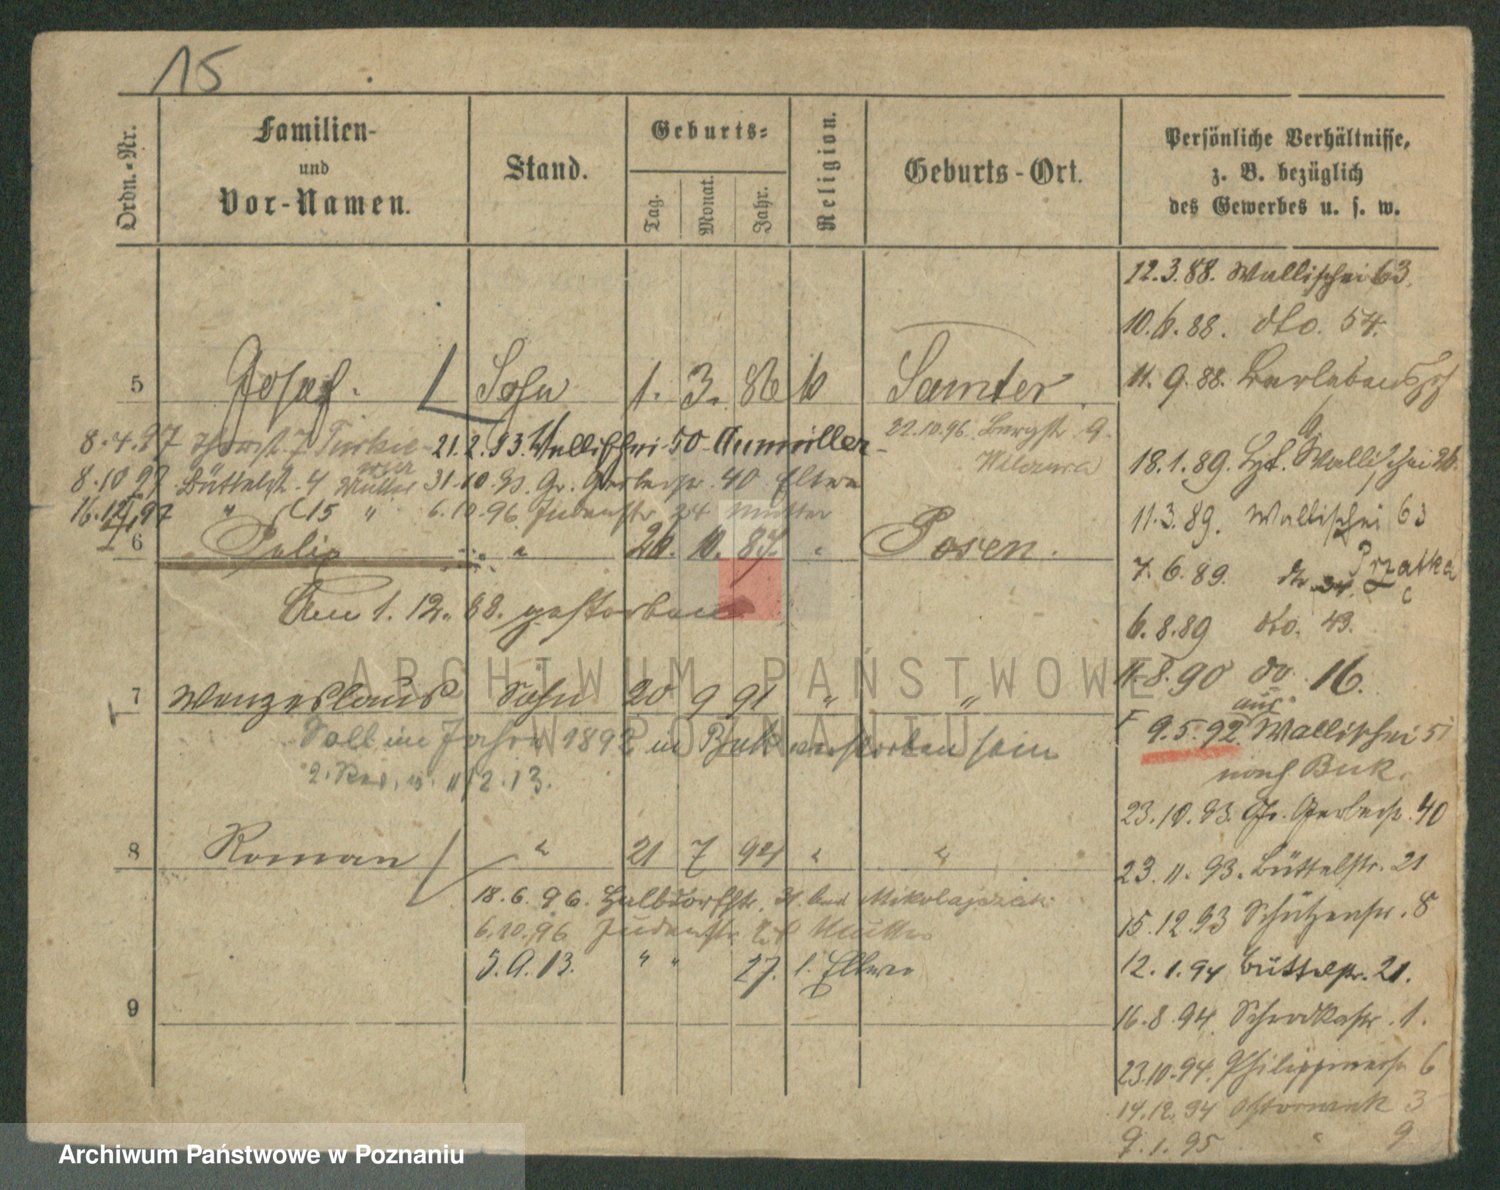 15
Ordn.-Nr.
Familien-
und
Vor-Namen.
Stand.
Geburts-
Tag.
Monat.
Jahr.
Religion.
Geburts-Ort.
Persönliche Verhältnisse,
z. B. bezüglich
des Gewerbes u. s. w.
12.3.88. Wallischei 63.
10.6.88. dto. 54.
11.9.88.
5 Josef. Sohn 1. 3. 86 Samter.
8.4.97 21.2.93. Wallischei 50
22.10.96. Bergstr. 9.
8.10.97 Büttelstr. 4 Mutter 31.10.93. Gr. Gerberstr. 40 Eltern
18.1.89. Wallischei
16.12.97 " 15 " 6.10.96 Judenstr. Mutter
11.3.89. Wallischei 63
6 Felix " 20. 10. 87. " Posen.
7.6.89.
Am 1.12.88. gestorben
6.8.89 dto. 43.
7 Wenzeslaus Sohn 20 9 91 " "
11.8.90 do 16.
Soll im Jahre 1892 in Buk verstorben sein
9.5.92 aus Wallischei 51
nach Buk.
2.13.
23.10.93. Gr. Gerberstr. 40
8 Roman " 21 7 94 " "
23.11.93. Büttelstr. 21
18.6.96. Halbdorfstr. 31. bei Mikolajczak
15.12.93 Schützenstr. 8
6.10.96 Judenstr. Mutter
5.9.13. " " 27. Eltern
12.1.94 Büttelstr. 21.
9
16.8.94 Schrodkastr. 1.
23.10.94. Philippinerstr. 6
14.12.94 Ostrowek 3
9.1.95 " 9
ARCHIWUM PAŃSTWOWE
W POZNANIU
Archiwum Państwowe w Poznaniu